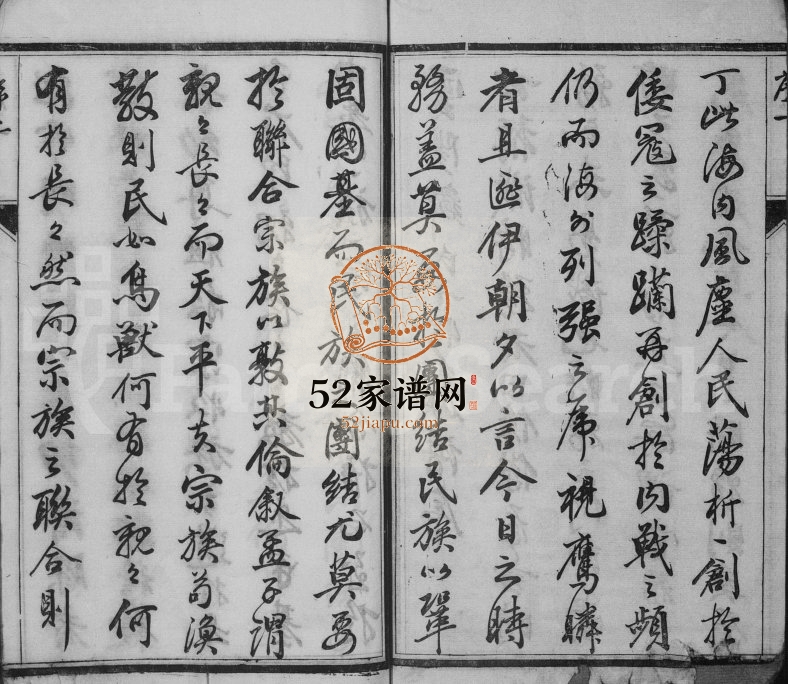 丁此海內風塵人民蕩析一創於
倭寇之蹂躪再創於內戰之頻
仍而海外列强之虎視鷹瞵
者且匪伊朝夕以言今日之時
務蓋莫團結民族以鞏
固國基而民族團結尤莫要
於聯合宗族以敦其倫叙孟子謂
親々長々而天下平夫宗族苟渙
散則民如鳥獸何有於親々何
有於長々然而宗族之聯合則
52家谱网
52jiapu.com